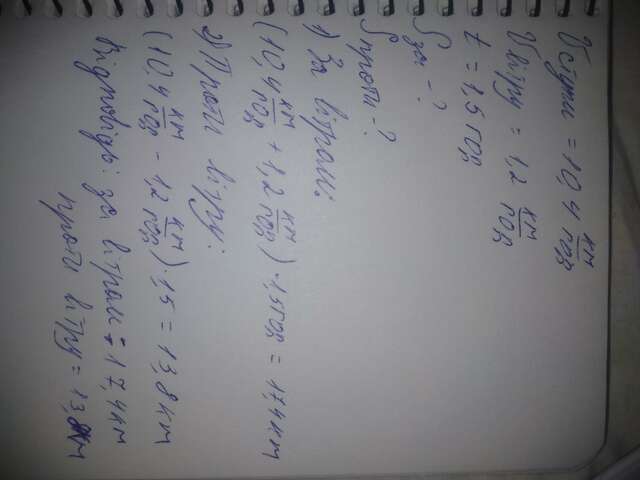 Vступи = 10,4 км/год
Vвітру = 1,2 км/год
t = 1,5 год
S за - ?
S проти - ?
1) За вітром:
(10,4 км/год + 1,2 км/год) · 1,5 год = 17,4 км
2) Проти вітру:
(10,4 км/год - 1,2 км/год) · 1,5 = 13,8 км
Відповідь: за вітром = 17,4 км
проти вітру = 13,8 км